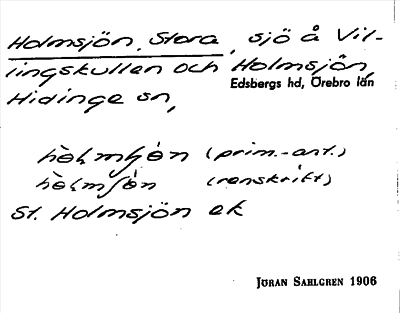 Holmsjön, Stora, sjö å Vil-
lingskullen och Holmsjön,
Edsbergs hd, Örebro län
Hidinge sn,
(prim.-ant.)
(renskrift)
St. Holmsjön ek
JÖRAN SAHLGREN 1906